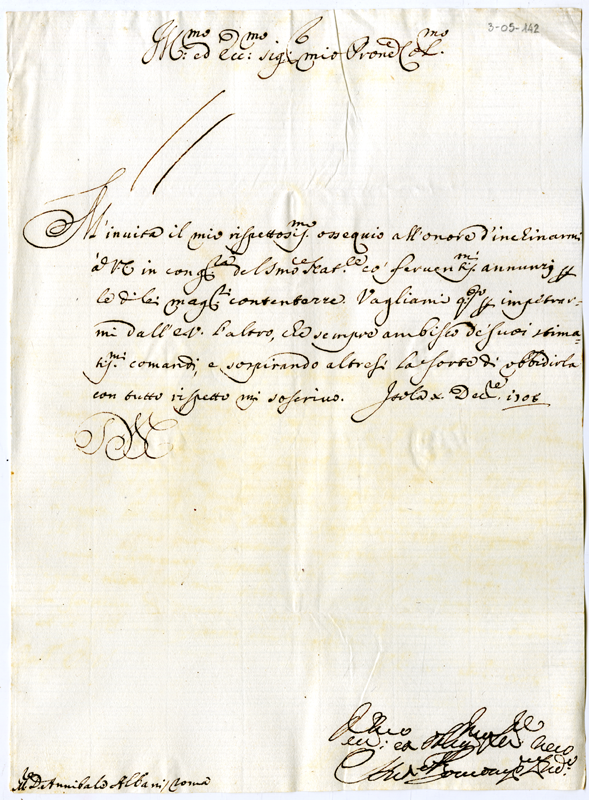 3-05-142
Ill:mo ed Ecc:mo Sig:r mio Prone Col:mo
M'invita il mio rispettosis:mo ossequio all'onore d'inchinarmi
à VE in cong:ra del S:mo Nat:le co' ferventis:mi annunzj
le di lei mag:ri contentezze. Vagliami q:sto impetrar-
mi dall'E.V. l'altro, che sempre ambisco de' suoi stima-
tis:mi comandi, e sospirando altresi la sorte di obbidirla
con tutto rispetto mi soscrivo. Dec:e 1708
D Annibale Albani Roma